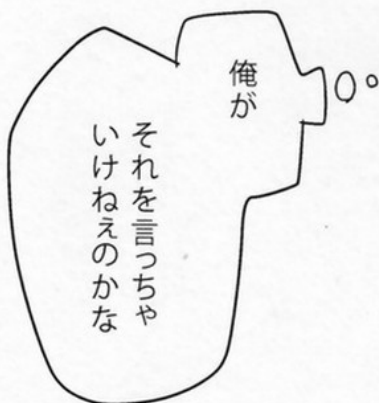 俺が
それを言っちゃ
いけねぇのかな